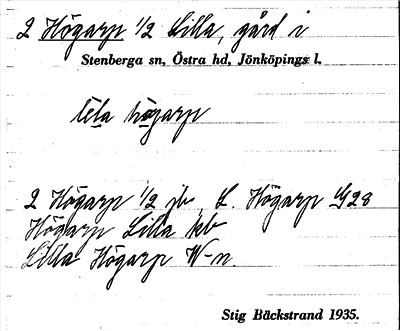 2 Högarp 1/2 Lilla, gård i
Stenberga sn, Östra hd, Jönköpings l.
lila högarp
2 Högarp 1/2 jb, L. Högarp
Högarp Lilla kb
Lilla Högarp W-n.
Stig Bäckstrand 1935.